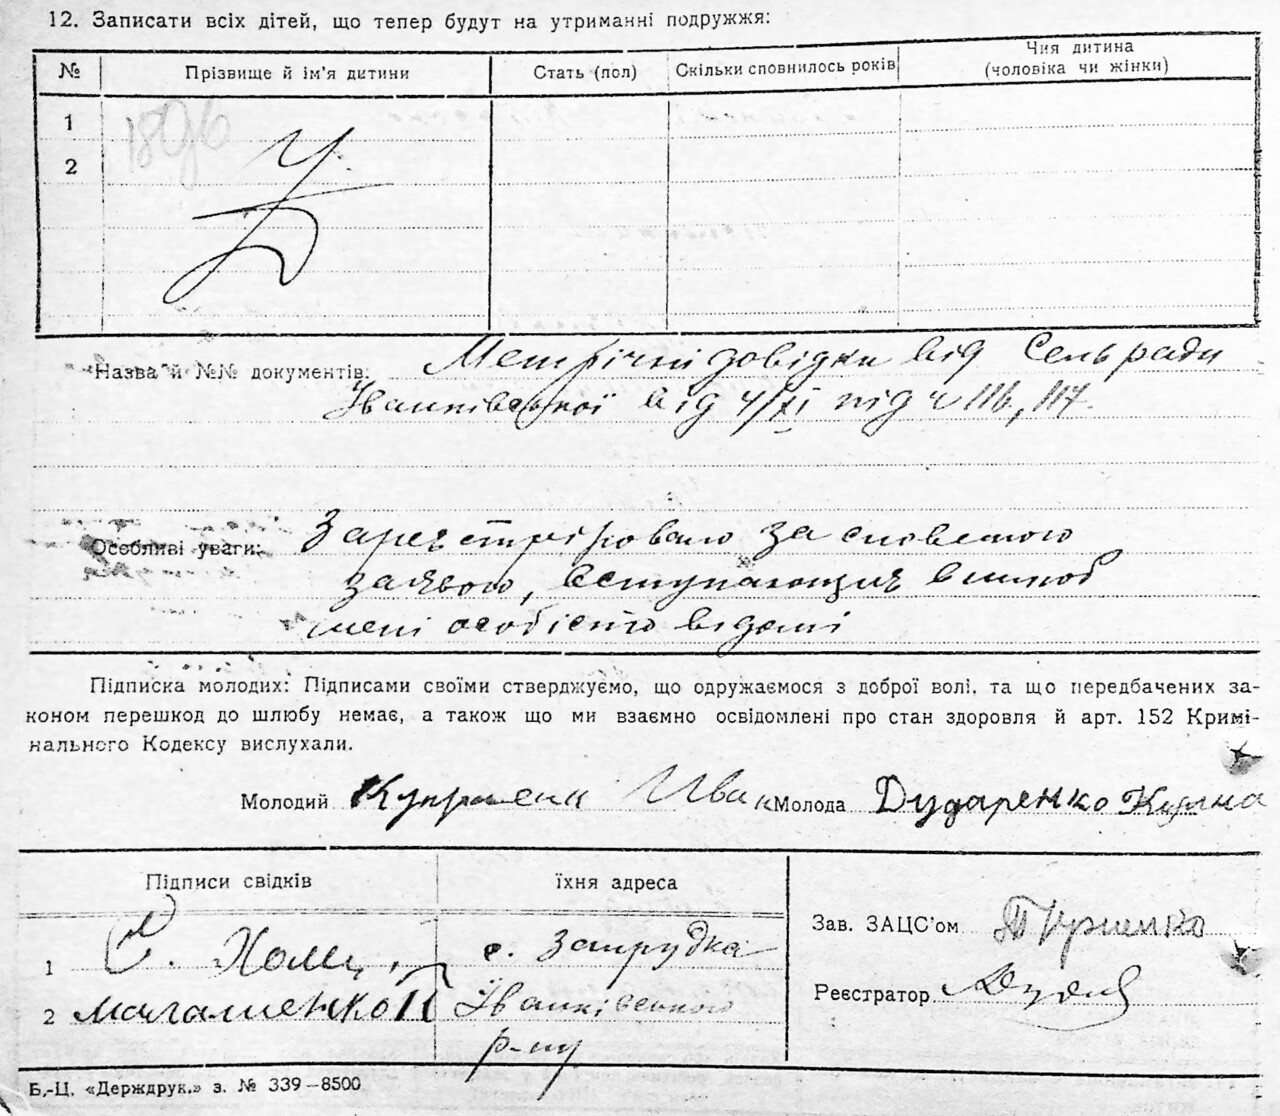 12. Записати всіх дітей, що тепер будут на утриманні подружжя:
№ Прізвище й ім'я дитини Стать (пол) Скільки сповнилось років Чия дитина (чоловіка чи жінки)
1
2
Назва й №№ документів: Метрічні довідки від Сельради
Іванківської від 4/XI під ч 116, 117.
Особливі уваги: Зареєстріровано за словесною
заявою, вступающих в шлюб
мені особісто відомі
Підписка молодих: Підписами своїми стверджуємо, що одружаємося з доброї волі, та що передбачених за-
коном перешкод до шлюбу немає, а також що ми взаємно освідомлені про стан здоровля й арт. 152 Кримі-
нального Кодексу вислухали.
Молодий Иван Молода Дударенко
Підписи свідків їхня адреса
Зав. ЗАЦС'ом
1 с. Запрудка
Реєстратор
2 Іванківського
р-ну
Б.-Ц. «Держдрук.» з. № 339—8500